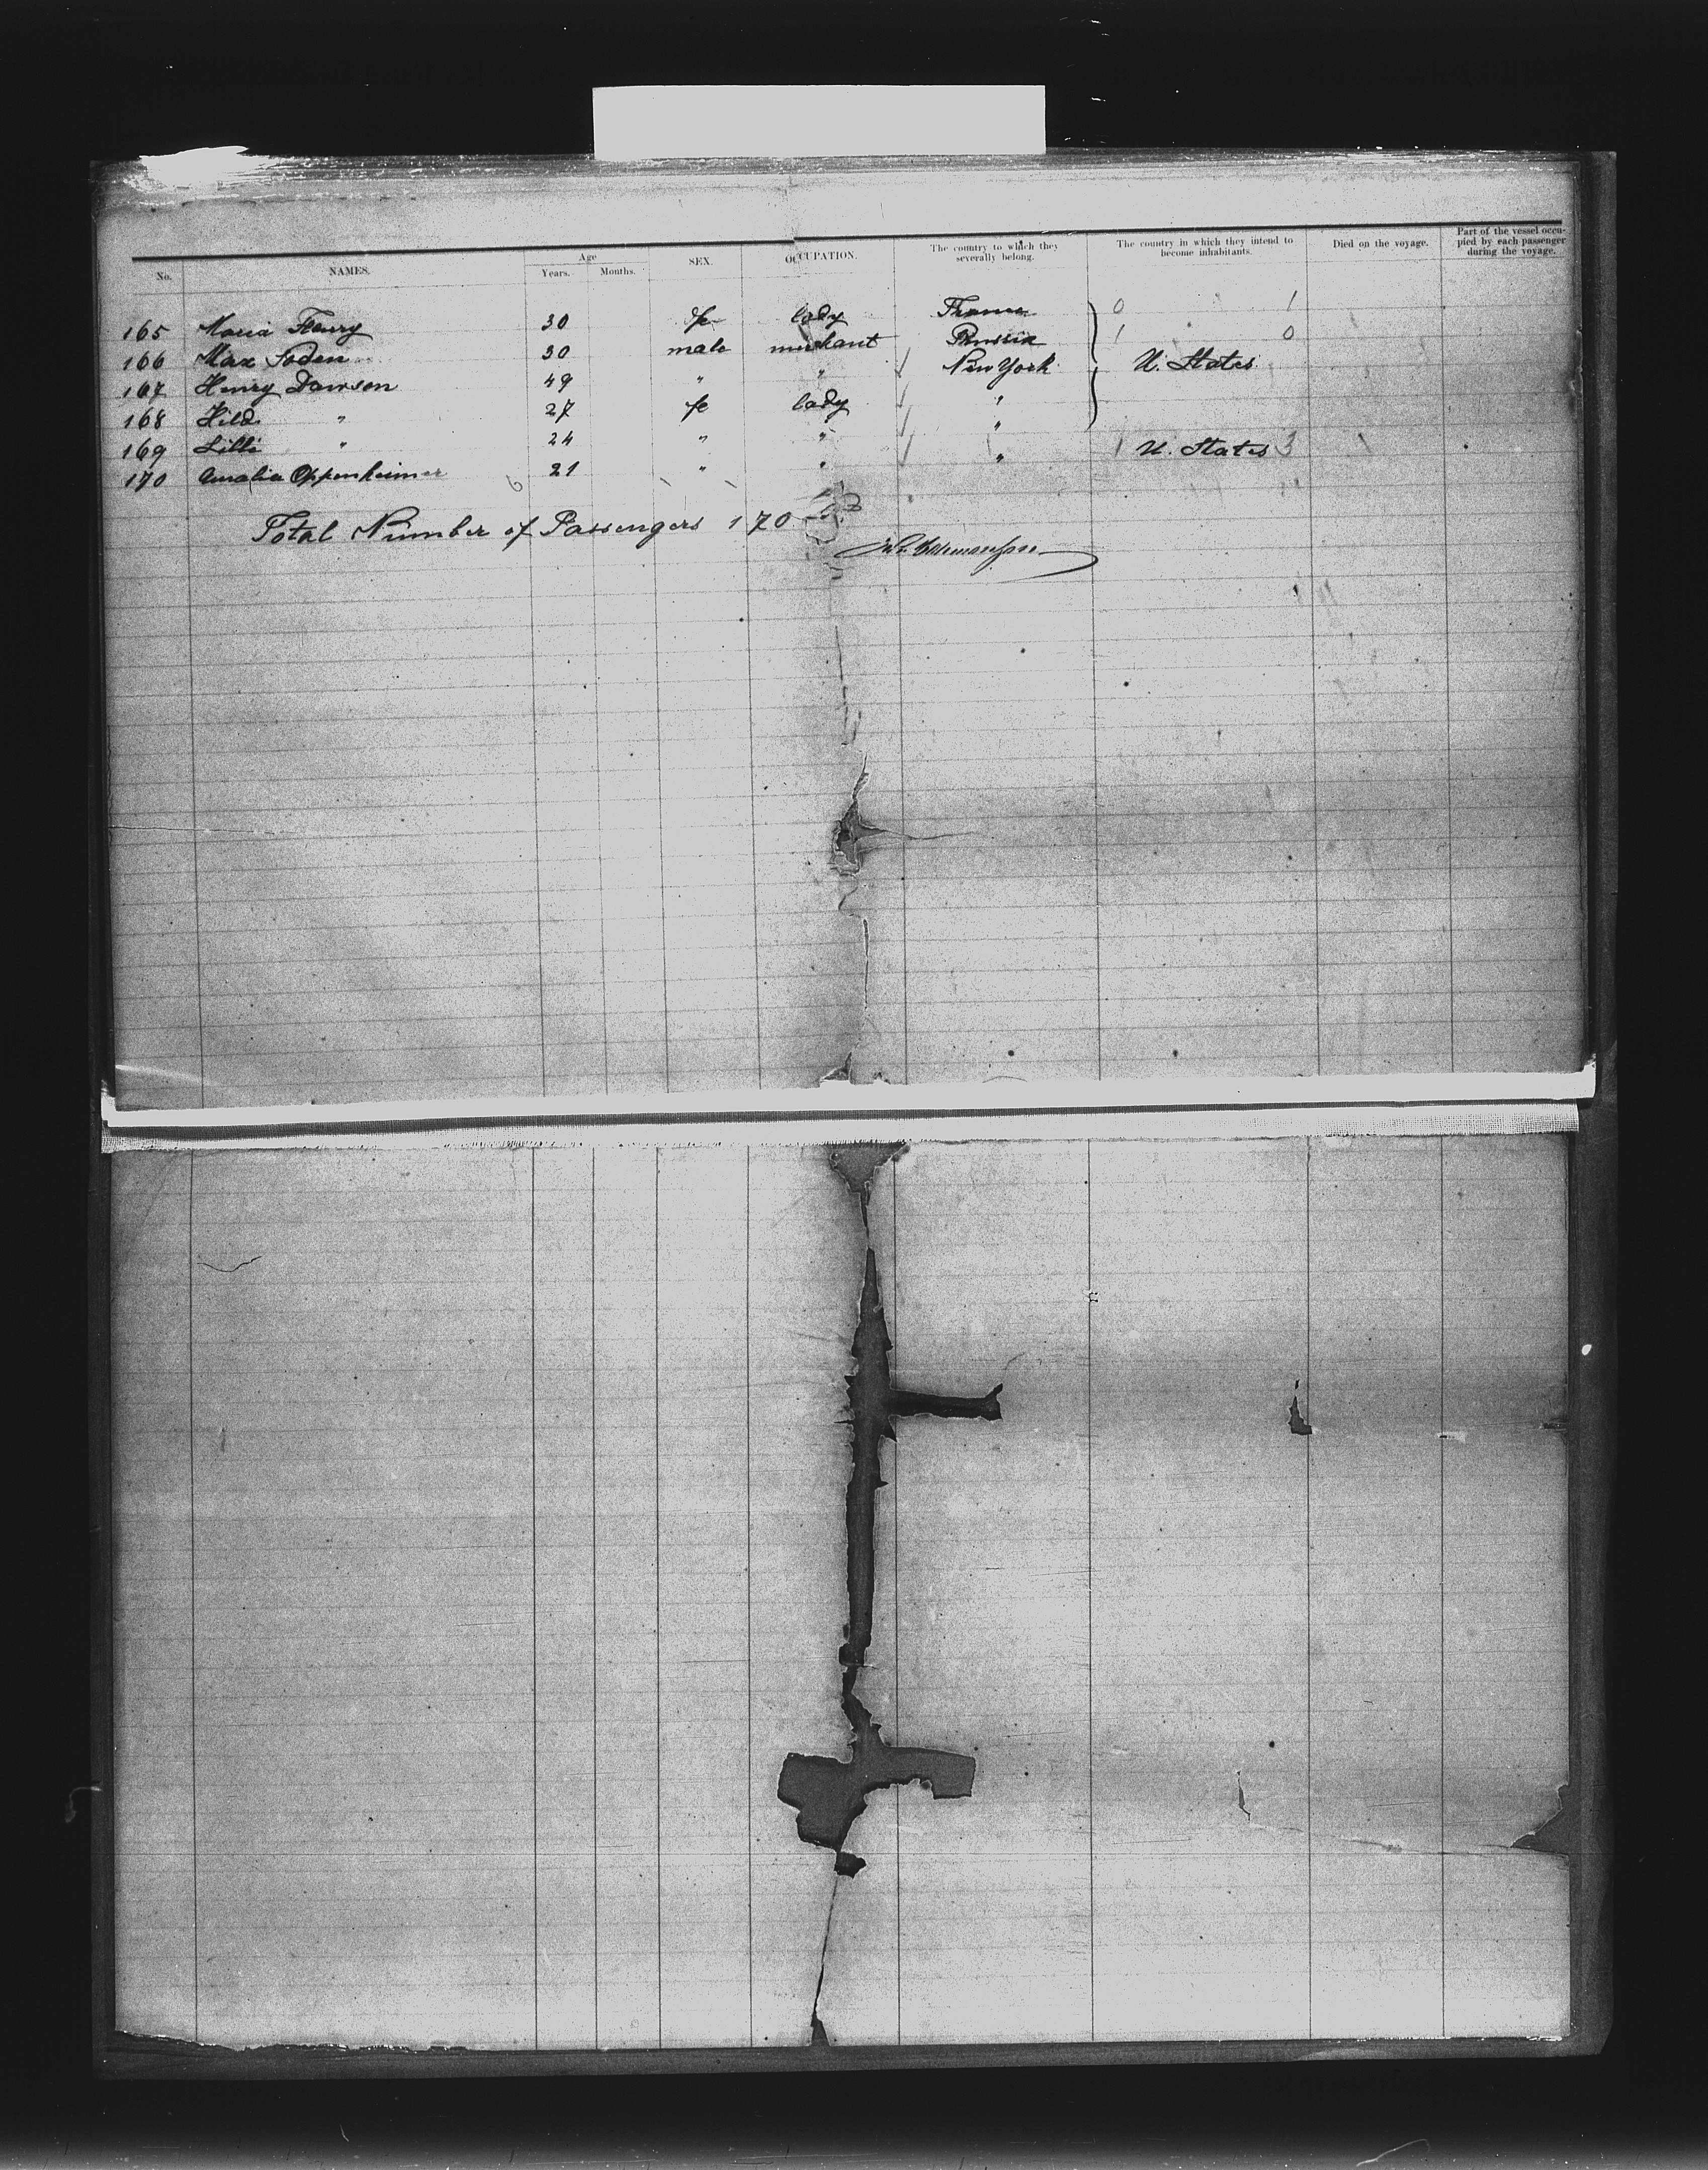 No. NAMES. Age Years. Months. SEX. OCCUPATION. The country to which they severally belong. The country in which they intend to become inhabitants. Died on the voyage. Part of the vessel occupied by each passenger during the voyage.
165 Maria Fleury 30 fe lady France 0 1
166 Max Soden 30 male merchant Prussia 1 0
167 Henry Dawson 49 " " New York U. States
168 Hild " 27 fe lady "
169 Lilli " 24 " " "
170 Amalia Oppenheimer 21 " " " 1 U. States 3
6
Total Number of Passengers 170